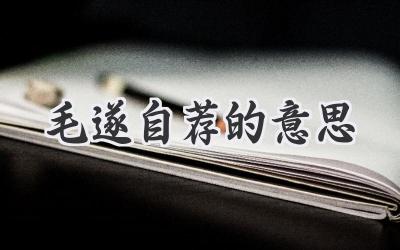 毛遂自荐的意思